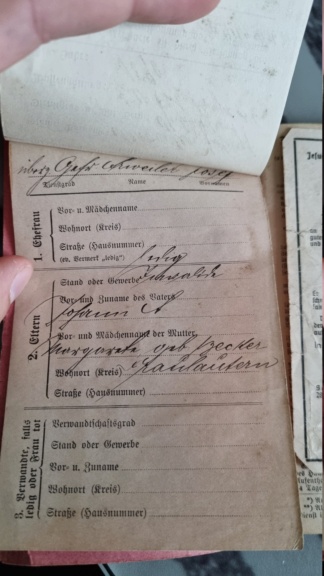 Gefr
Dienstgrad Name Vornamen
1. Ehefrau
Vor- u. Mädchenname
Wohnort (Kreis)
Straße (Hausnummer)
(ev. Vermerk „ledig“) ledig
2. Eltern
Stand oder Gewerbe
Vor- und Zuname des Vaters
Johann
Vor- und Mädchenname der Mutter
Margarete geb Becker
Wohnort (Kreis) Fraulautern
Straße (Hausnummer)
3. Verwandte, falls ledig oder Frau tot
Verwandtschaftsgrad
Stand oder Gewerbe
Vor- u. Zuname
Wohnort (Kreis)
Straße (Hausnummer)